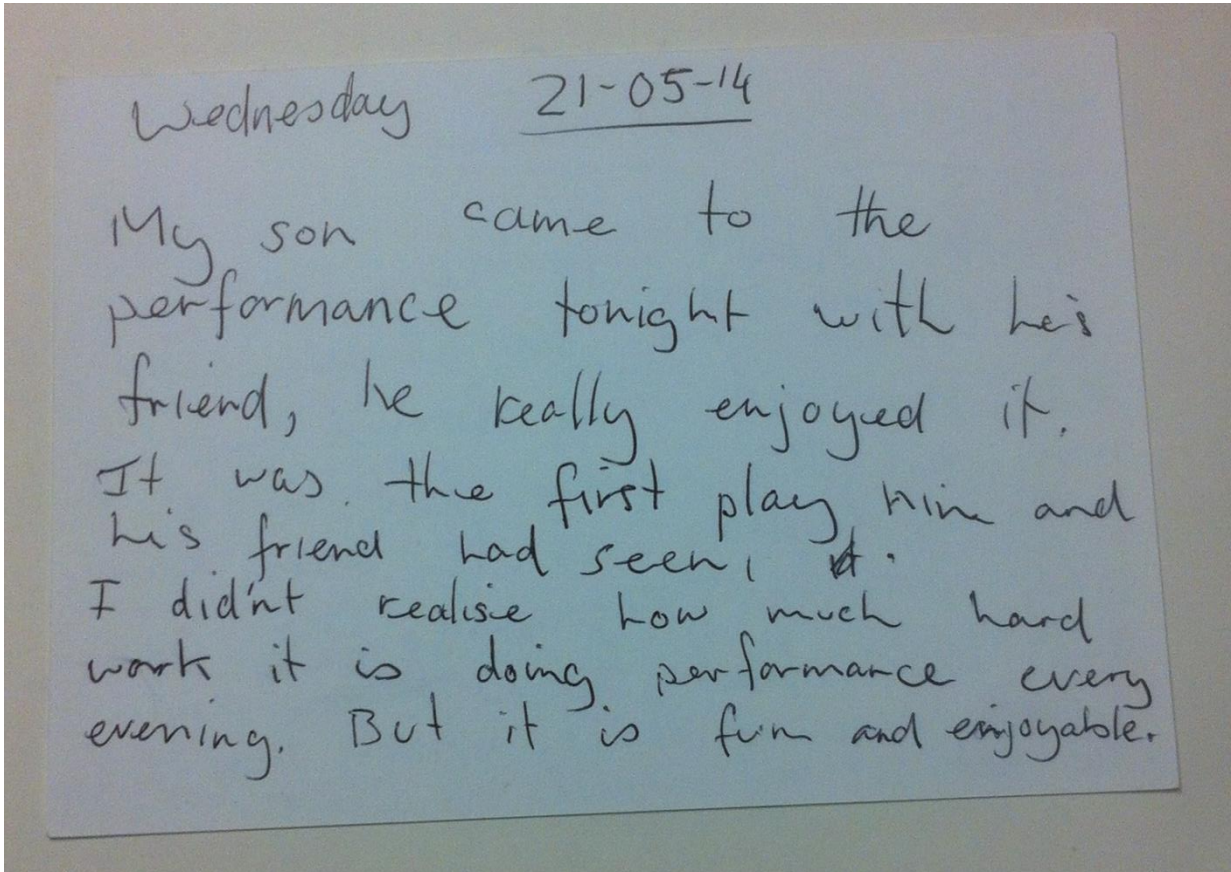 Wednesday 21-05-14
My son came to the
performance tonight with he's
friend, he really enjoyed it.
It was the first play him and
his friend had seen, .
I did'nt realise how much hard
work it is doing performance every
evening. But it is fun and enjoyable.